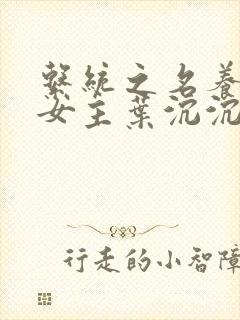 繫統之名養
女主葉沉沉
行走的小智障